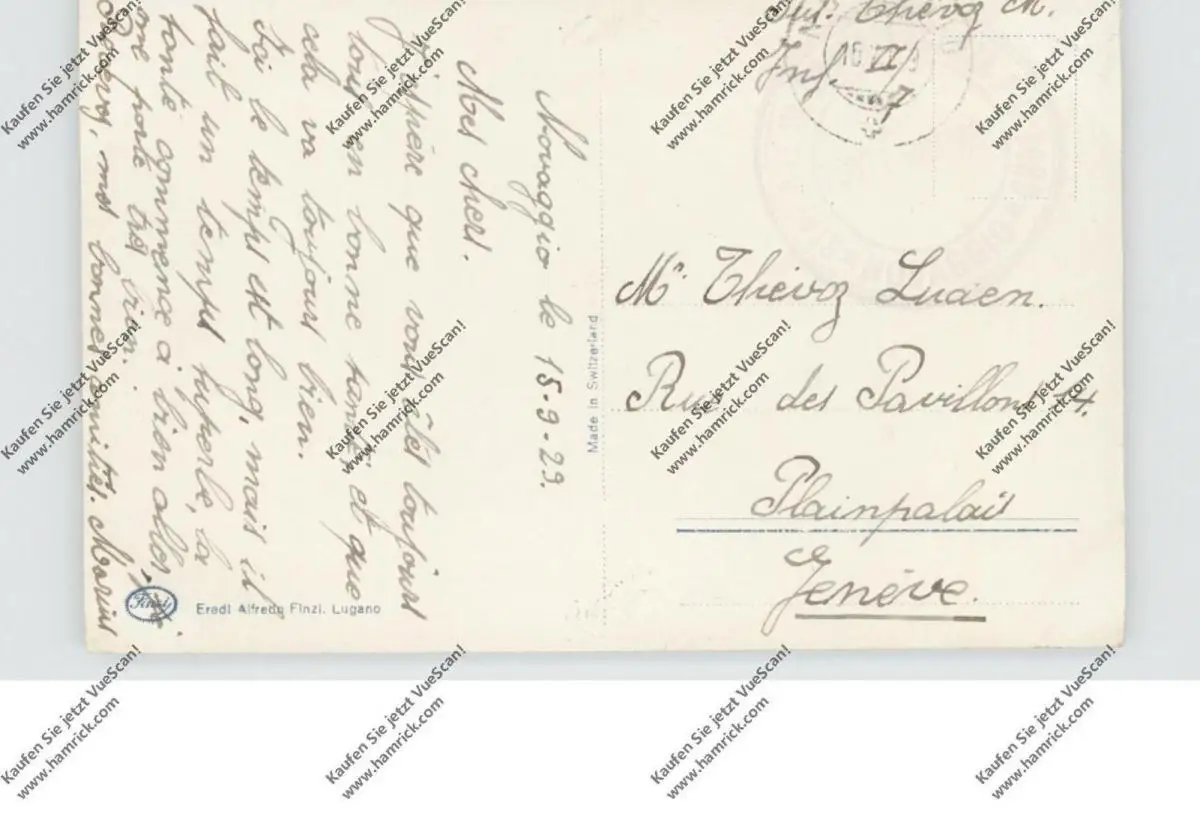 Novaggio le 15-9-29.
Mes chers.
J'espère que vous êtes toujours
tous en bonne santé et que
cela va toujours bien.
Ici le temps est long, mais il
fait un temps superbe, la
commence à bien aller,
porte très bien.
mes bonnes amitiés. Marius
Eredi Alfredo Finzi. Lugano
Made in Switzerland
Thévoz M.
Inf.
Mr Thévoz Lucien.
Rue des Pavillons 14.
Plainpalais
Genève.
Kaufen Sie jetzt VueScan!
www.hamrick.com